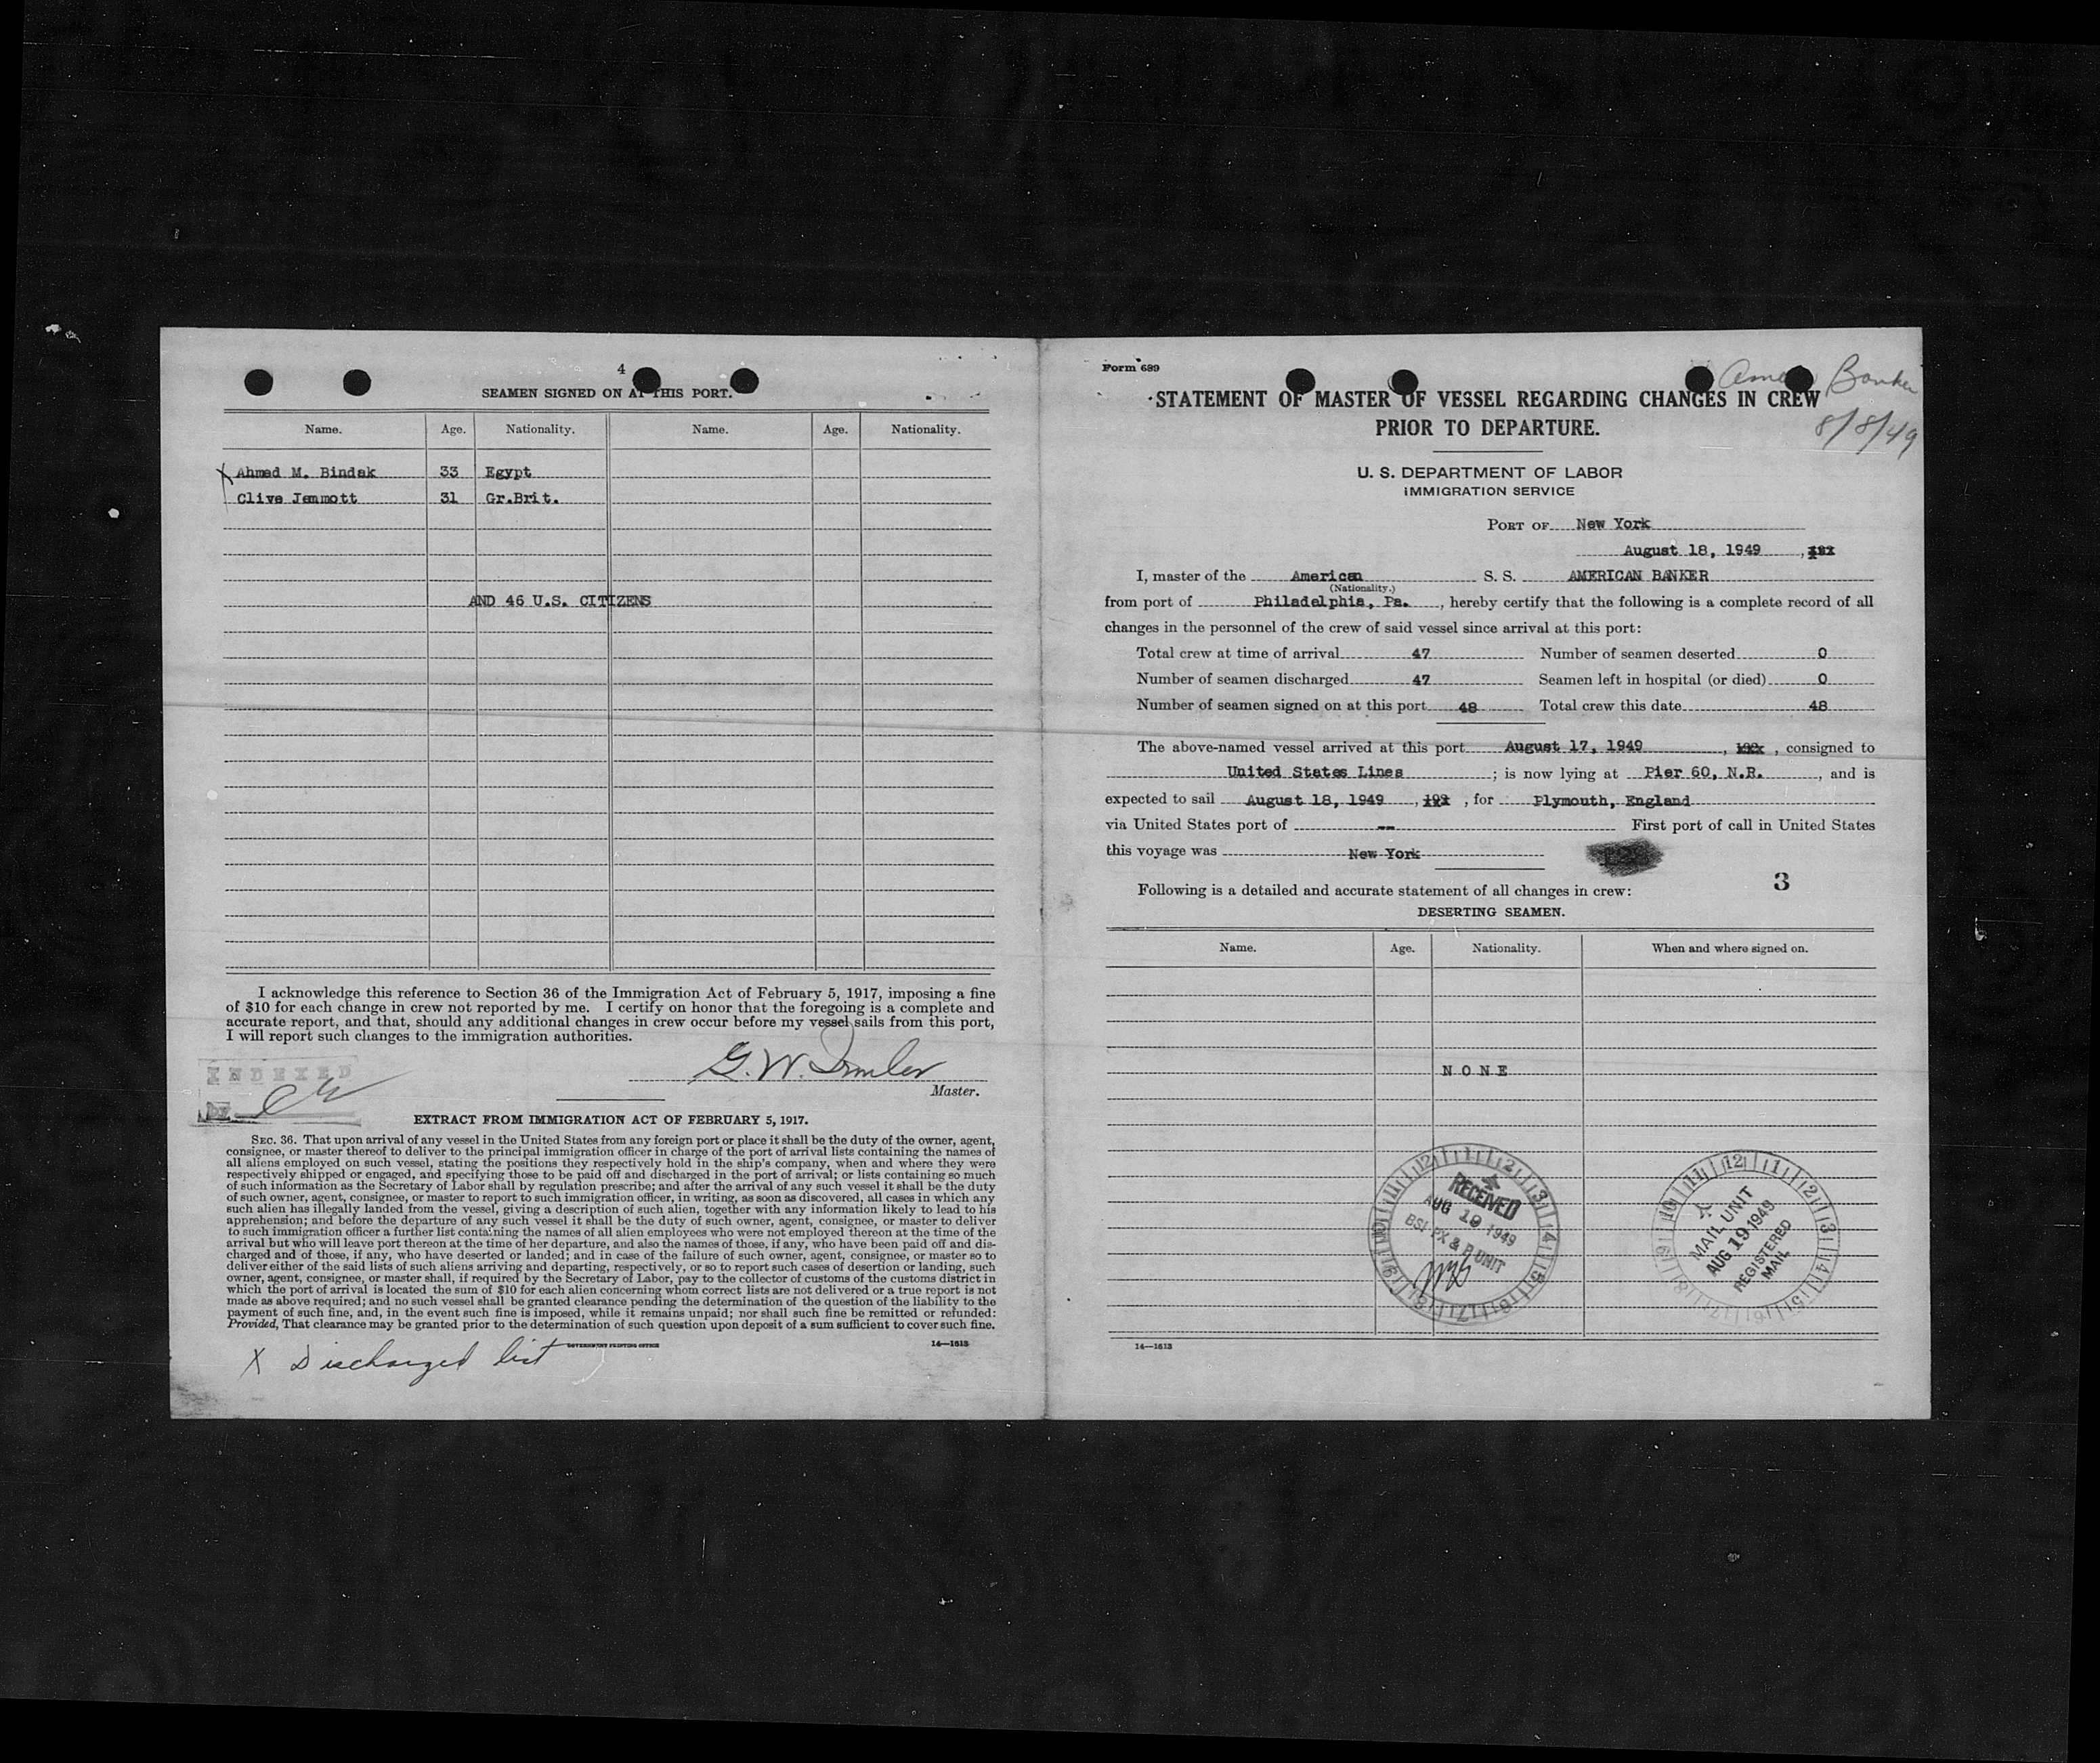 4
SEAMEN SIGNED ON AT THIS PORT.
Name. Age. Nationality. Name. Age. Nationality.
X Ahmed M. Bindak 33 Egypt
Clive Jemmott 31 Gr.Brit.
AND 46 U.S. CITIZENS
I acknowledge this reference to Section 36 of the Immigration Act of February 5, 1917, imposing a fine
of $10 for each change in crew not reported by me. I certify on honor that the foregoing is a complete and
accurate report, and that, should any additional changes in crew occur before my vessel sails from this port,
I will report such changes to the immigration authorities.
INDEXED
G. W.
BY
Master.
EXTRACT FROM IMMIGRATION ACT OF FEBRUARY 5, 1917.
SEC. 36. That upon arrival of any vessel in the United States from any foreign port or place it shall be the duty of the owner, agent,
consignee, or master thereof to deliver to the principal immigration officer in charge of the port of arrival lists containing the names of
all aliens employed on such vessel, stating the positions they respectively hold in the ship's company, when and where they were
respectively shipped or engaged, and specifying those to be paid off and discharged in the port of arrival; or lists containing so much
of such information as the Secretary of Labor shall by regulation prescribe; and after the arrival of any such vessel it shall be the duty
of such owner, agent, consignee, or master to report to such immigration officer, in writing, as soon as discovered, all cases in which any
such alien has illegally landed from the vessel, giving a description of such alien, together with any information likely to lead to his
apprehension; and before the departure of any such vessel it shall be the duty of such owner, agent, consignee, or master to deliver
to such immigration officer a further list containing the names of all alien employees who were not employed thereon at the time of the
arrival but who will leave port thereon at the time of her departure, and also the names of those, if any, who have been paid off and dis-
charged and of those, if any, who have deserted or landed; and in case of the failure of such owner, agent, consignee, or master so to
deliver either of the said lists of such aliens arriving and departing, respectively, or so to report such cases of desertion or landing, such
owner, agent, consignee, or master shall, if required by the Secretary of Labor, pay to the collector of customs of the customs district in
which the port of arrival is located the sum of $10 for each alien concerning whom correct lists are not delivered or a true report is not
made as above required; and no such vessel shall be granted clearance pending the determination of the question of the liability to the
payment of such fine, and, in the event such fine is imposed, while it remains unpaid; nor shall such fine be remitted or refunded:
Provided, That clearance may be granted prior to the determination of such question upon deposit of a sum sufficient to cover such fine.
GOVERNMENT PRINTING OFFICE 14—1613
X Discharged list
Form 689
Banker
STATEMENT OF MASTER OF VESSEL REGARDING CHANGES IN CREW
PRIOR TO DEPARTURE.
8/8/49
U. S. DEPARTMENT OF LABOR
IMMIGRATION SERVICE
PORT OF New York
August 18, 1949
I, master of the American S. S. AMERICAN BANKER
(Nationality.)
from port of Philadelphia, Pa., hereby certify that the following is a complete record of all
changes in the personnel of the crew of said vessel since arrival at this port:
Total crew at time of arrival 47 Number of seamen deserted 0
Number of seamen discharged 47 Seamen left in hospital (or died) 0
Number of seamen signed on at this port 48 Total crew this date 48
The above-named vessel arrived at this port August 17, 1949, consigned to
United States Lines; is now lying at Pier 60, N.R., and is
expected to sail August 18, 1949, for Plymouth, England
via United States port of -- First port of call in United States
this voyage was New York
3
Following is a detailed and accurate statement of all changes in crew:
DESERTING SEAMEN.
Name. Age. Nationality. When and where signed on.
NONE
RECEIVED
AUG 19 1949
BSI EX & B UNIT
MAIL UNIT
AUG 19 1949
REGISTERED
MAIL
14—1613